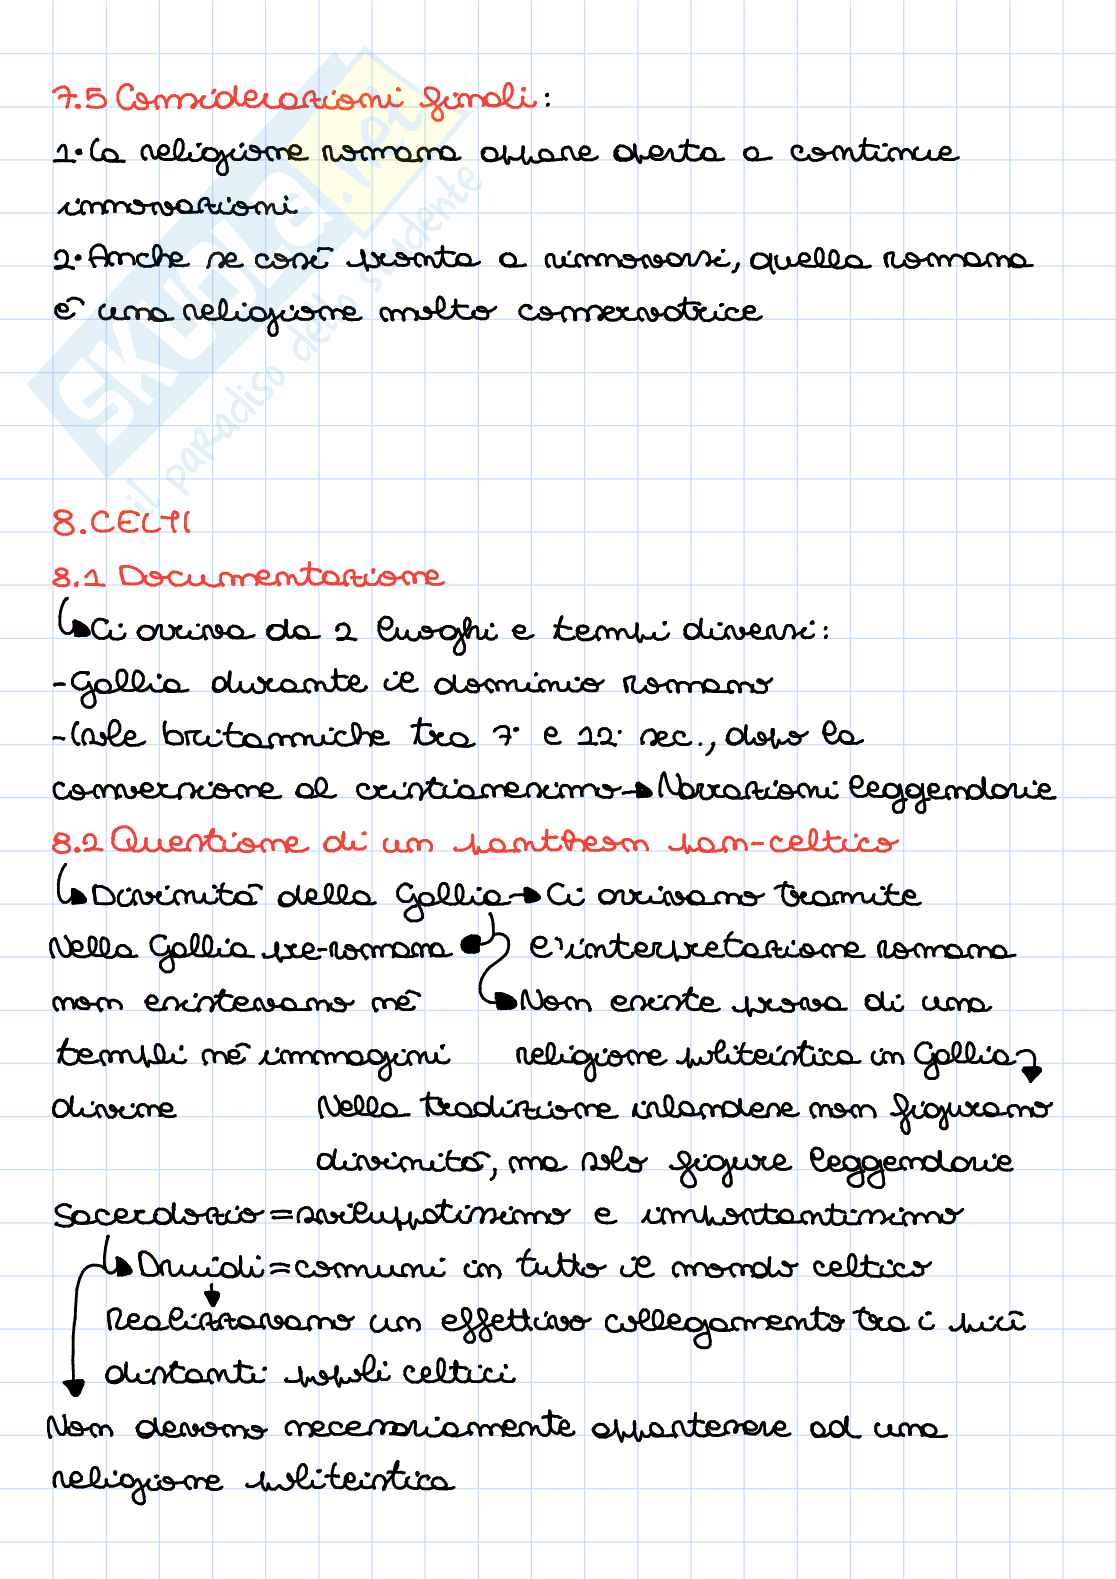 7.5 Considerazioni finali:
1. La religione romana appare aperta a continue
innovazioni
2. Anche se così pronta a rinnovarsi, quella romana
è una religione molto conservatrice
SKUOLA.net
il paradiso dello studente
8. CELTI
8.1 Documentazione
↳ Ci arriva da 2 luoghi e tempi diversi:
- Gallia durante il dominio romano
- Isole britanniche tra 7° e 12° sec., dopo la
conversione al cristianesimo → Narrazioni leggendarie
8.2 Questione di un pantheon pan-celtico
↳ Divinità della Gallia → Ci arrivano tramite
l'interpretazione romana
Nella Gallia pre-romana
non esistevano né
templi né immagini
divine
Non esiste prova di una
religione politeistica in Gallia
Nella tradizione irlandese non figurano
divinità, ma solo figure leggendarie
Sacerdozio = sviluppatissimo e importantissimo
↳ Druidi = comuni in tutto il mondo celtico
Realizzavano un effettivo collegamento tra i più
distanti popoli celtici
Non devono necessariamente appartenere ad una
religione politeistica